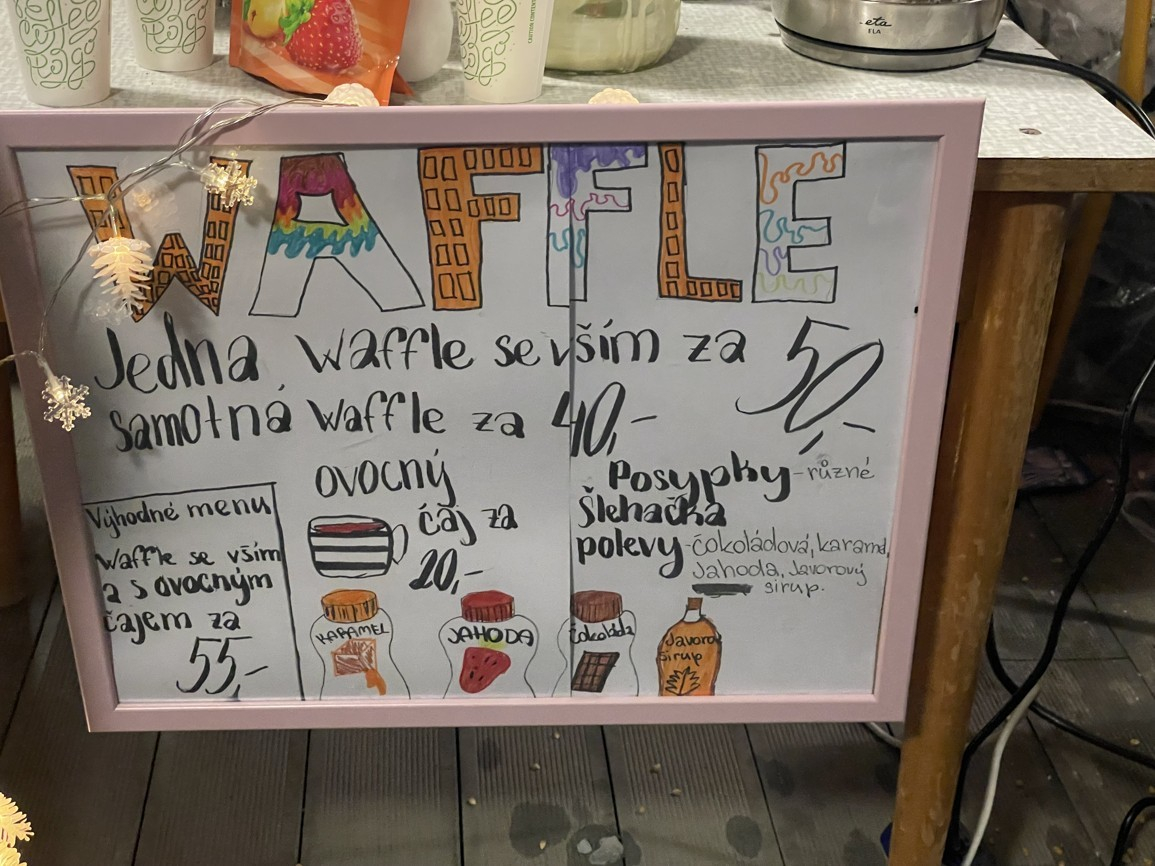 eta
ELA
WAFFLE
Jedna waffle se vším za 50,-
samotná waffle za 40,-
ovocný
čaj za
20,-
Výhodné menu
Waffle se vším
a s ovocným
čajem za
55,-
Posypky - různé
Šlehačka
polevy - čokoládová, karamel,
Jahoda, Javorový
sirup.
KARAMEL
JAHODA
čokoláda
Javorový
sirup